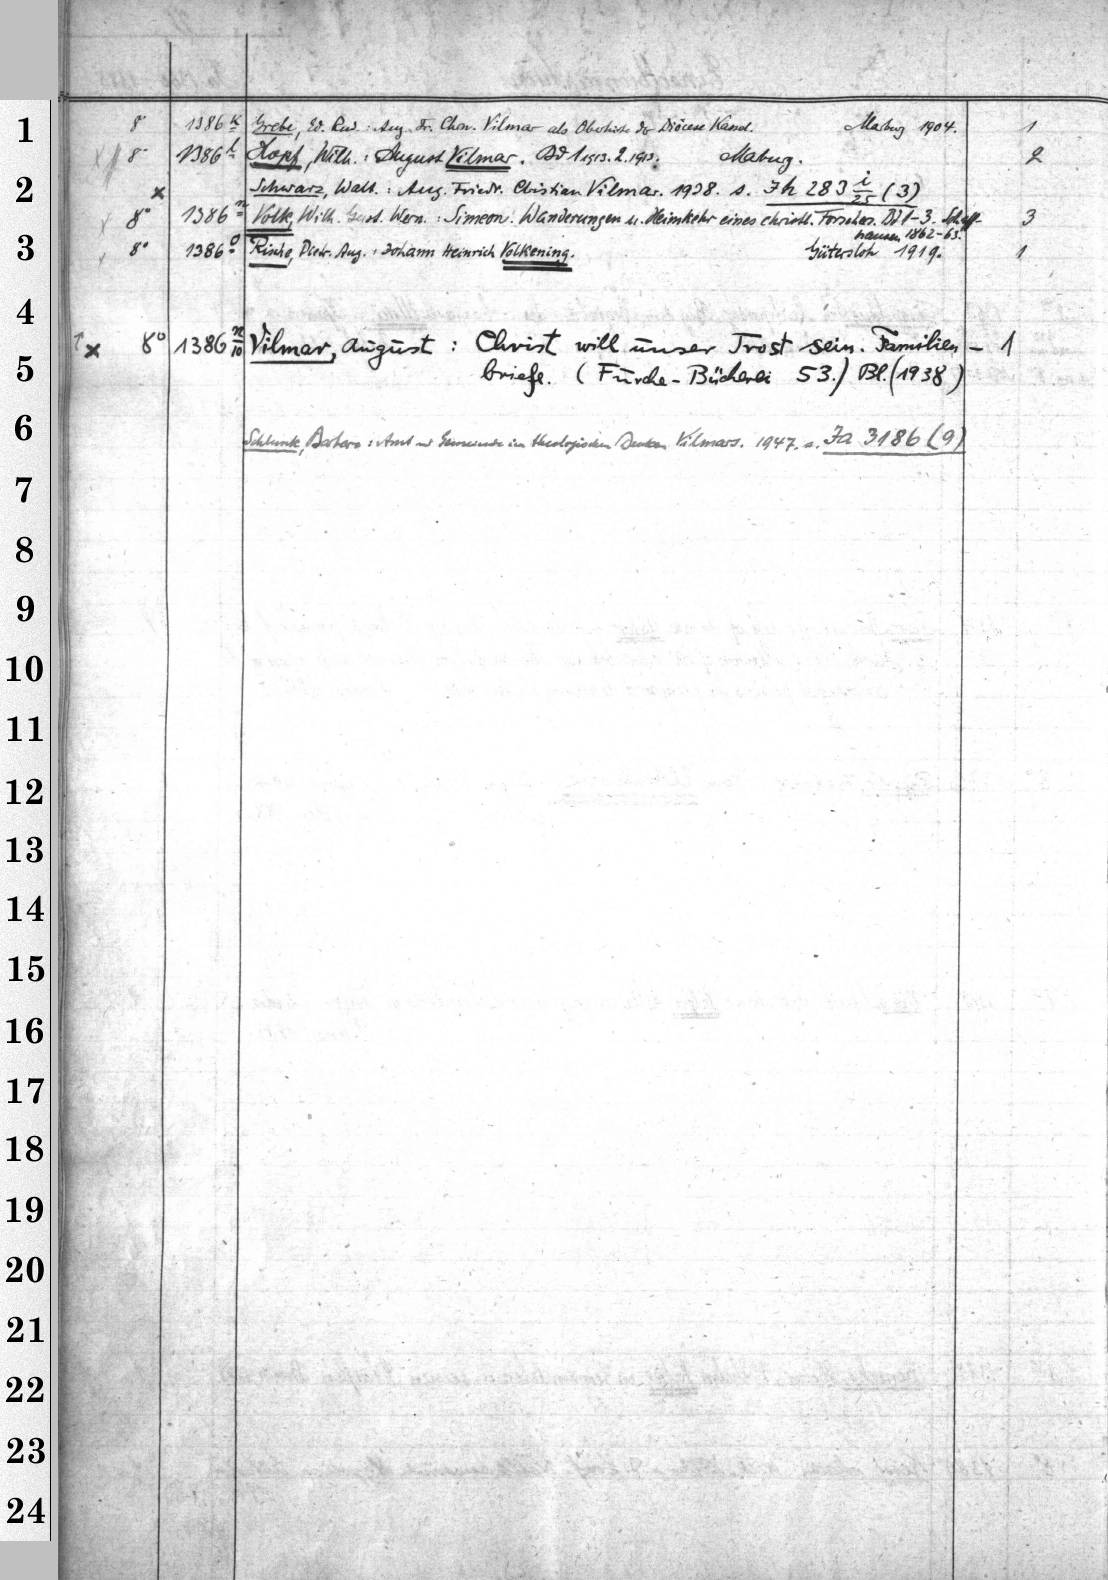 8° 1386 k Grebe, Ed. Rud.: Aug. Fr. Chrn. Vilmar als Oberhirte der Diöcese Kassel. Marburg 1904. 1
8° 1386 l Hopf, Wilh.: August Vilmar. Bd 1 1913. 2. 1913. Marburg. 2
x Schwarz, Walt.: Aug. Friedr. Christian Vilmar. 1938. s. Jh 283 i/25 (3)
8° 1386 n Volk, Wilh. Wern.: Simeon. Wanderungen u. Heimkehr eines christl. Forschers. Bd 1-3. Schaff-
hausen 1862-63. 3
8° 1386 o Rische, Dietr. Aug.: Johann Heinrich Volkening. Gütersloh 1919. 1
x 8° 1386 n/10 Vilmar, August: Christ will unser Trost sein. Familien- 1
briefe. (Furche-Bücherei 53.) Bl. (1938)
Schlunk, Barbara: Amt und Gemeinde im theologischen Denken Vilmars. 1947. s. Ja 3186 (9)
1
2
3
4
5
6
7
8
9
10
11
12
13
14
15
16
17
18
19
20
21
22
23
24